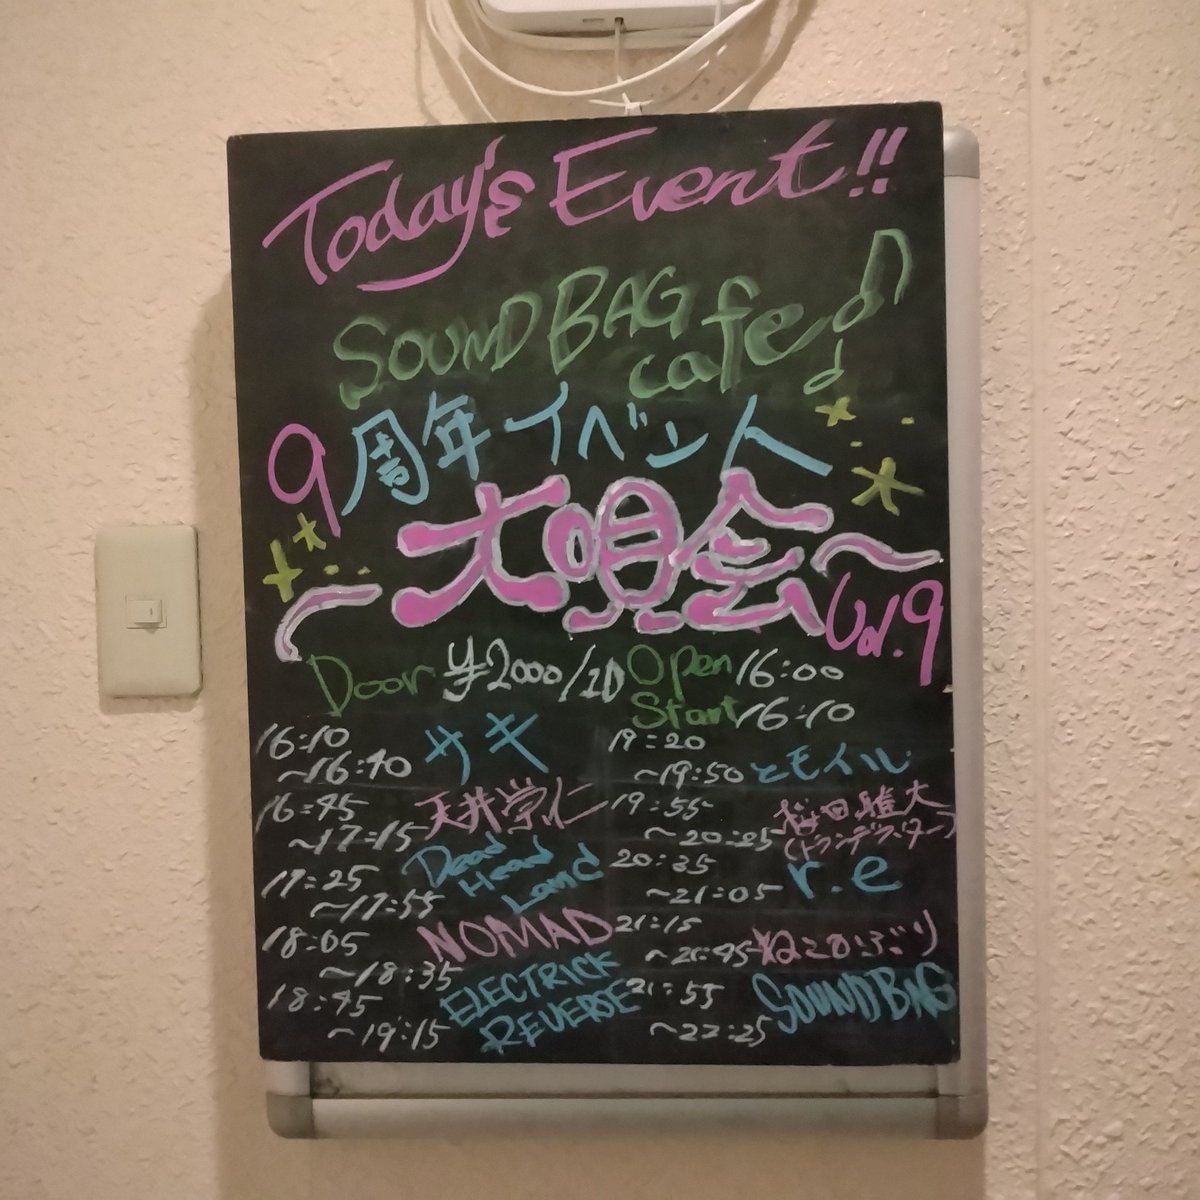 Today's Event!!
SOUND BAG
cafe
9周年イベント
~大唄会~
Vol.9
Door ¥2000/1D
Open 16:00
Start 16:10
16:10
~16:40 サキ
16:45
~17:15 天井崇仁
17:25
~17:55 Dead Head Land
18:05
~18:35 NOMAD
18:45
~19:15 ELECTRICK REVERSE
19:20
~19:50 とモイル
19:55
~20:25 桜田驗大
(トランデラバーター)
20:35
~21:05 r.e
21:15
~21:45 ねこのぶり
21:55
~22:25 SOUND BAG